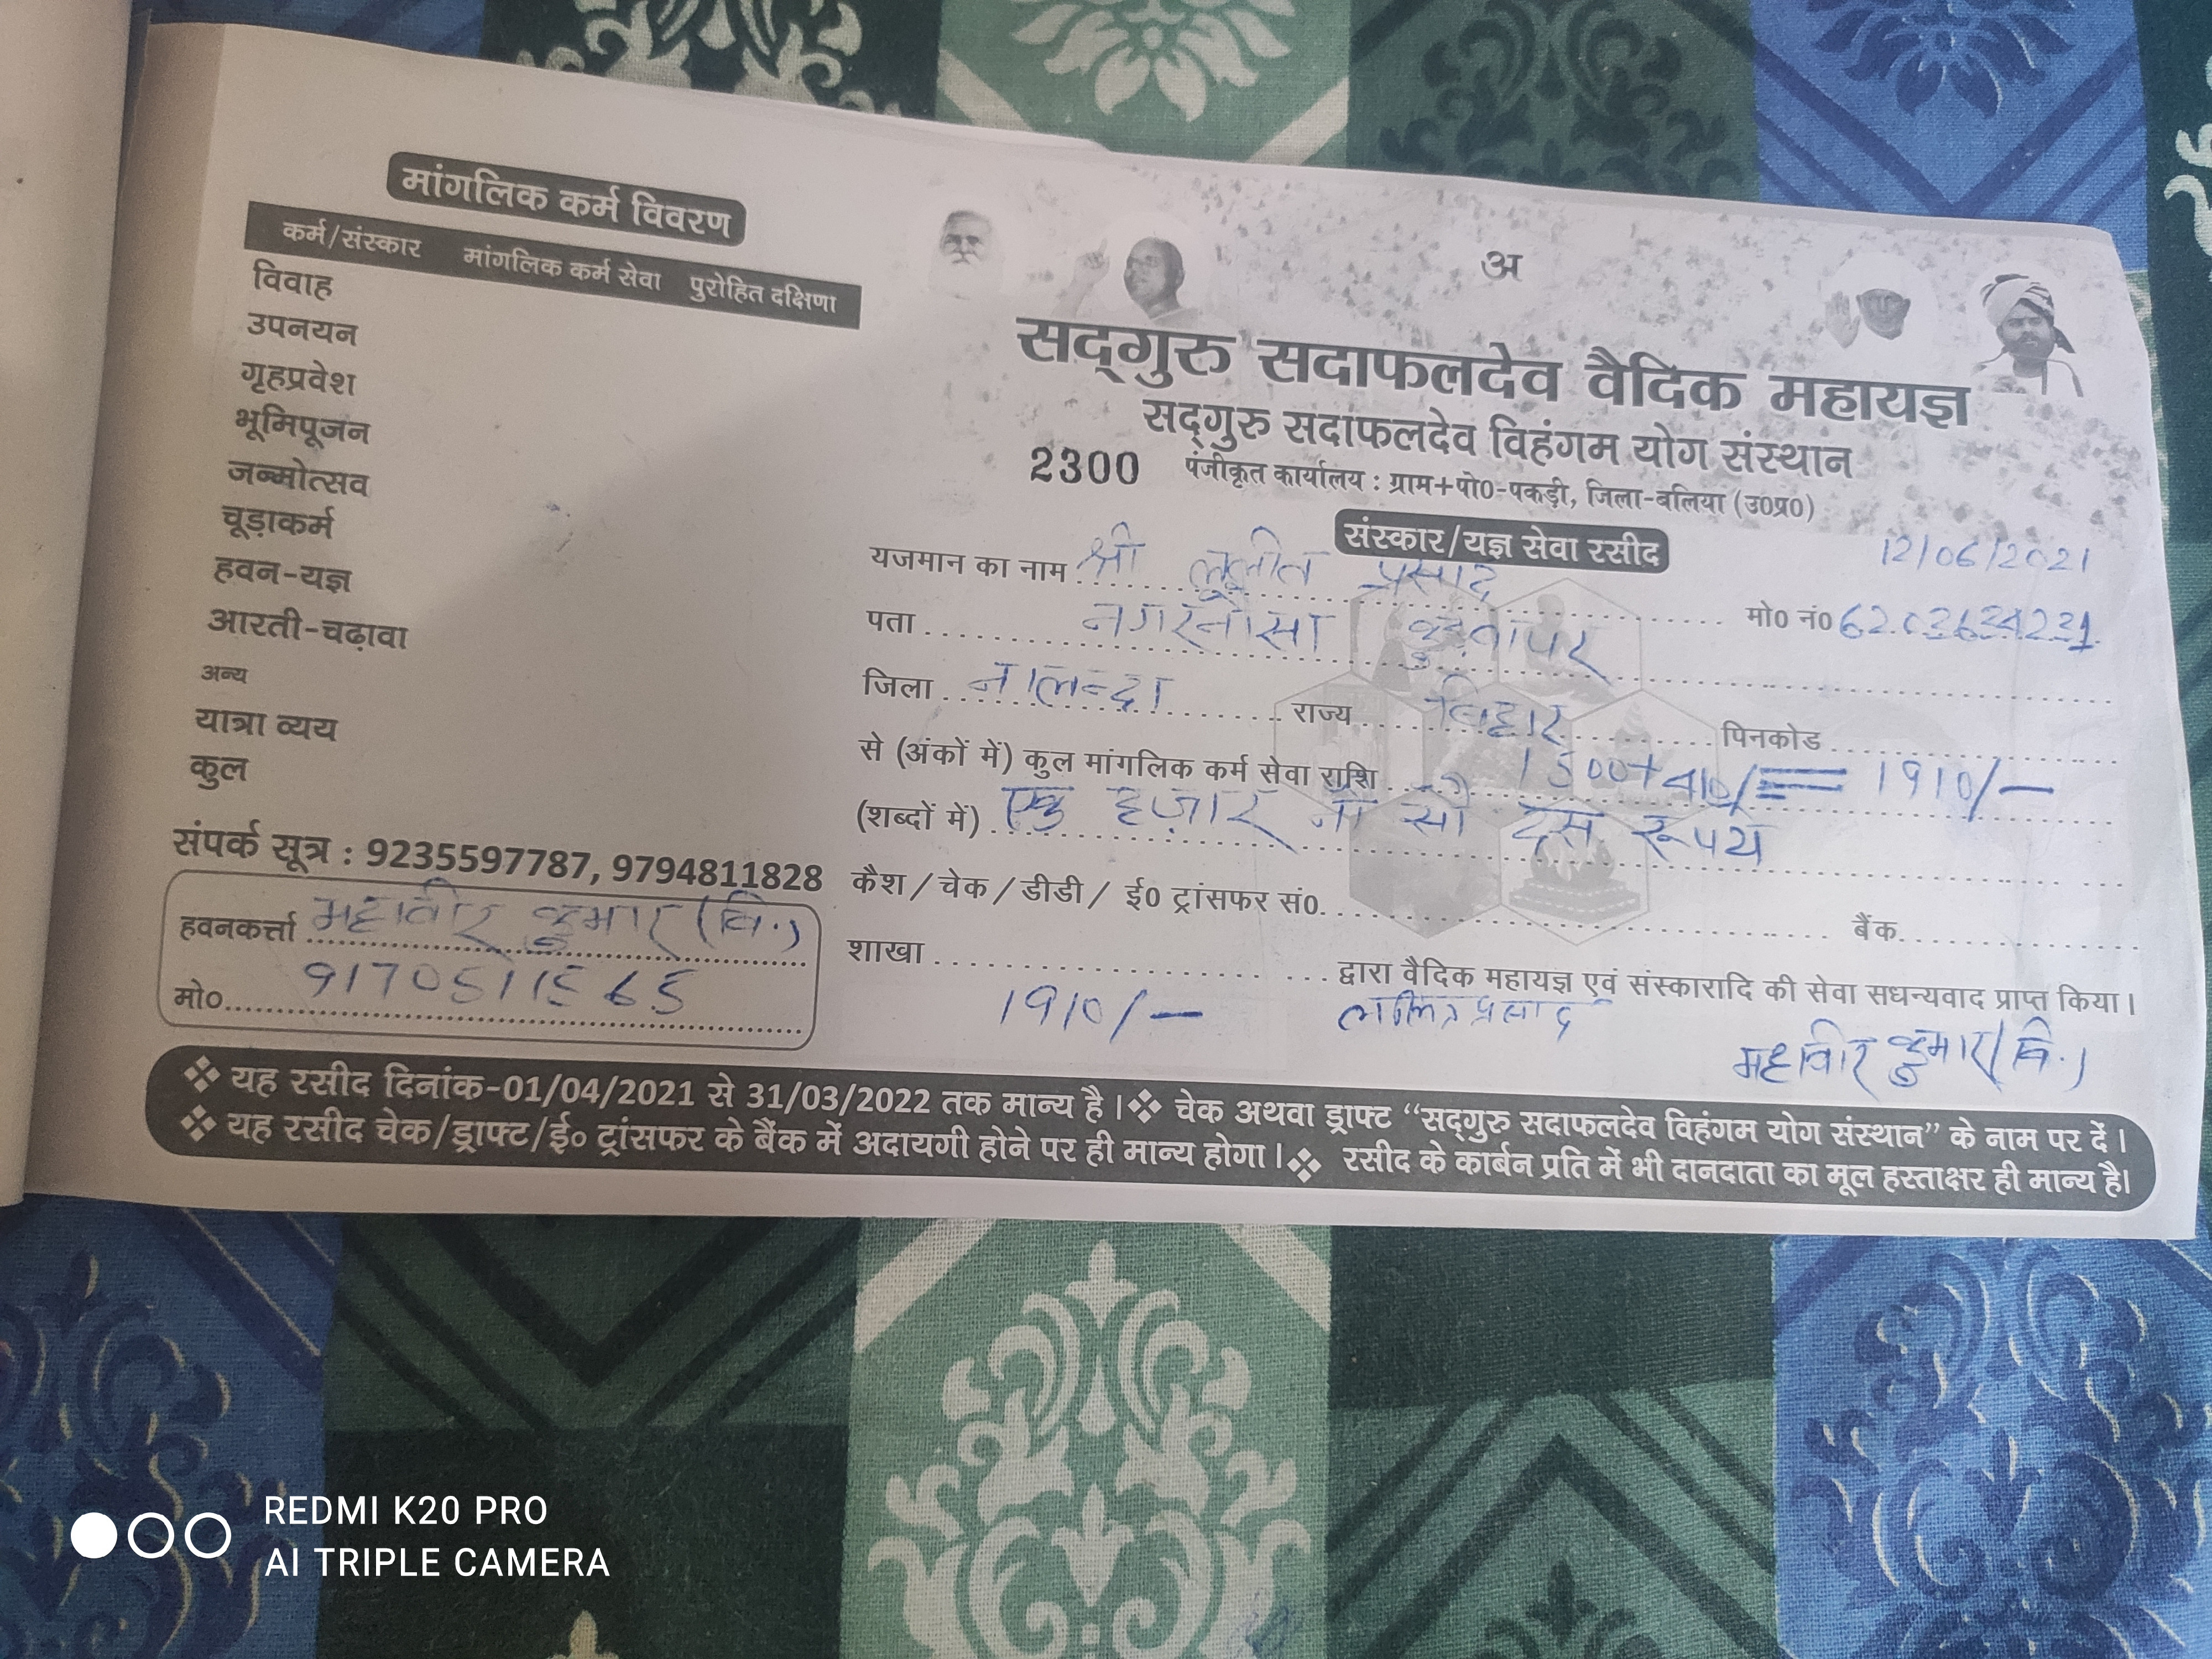 मांगलिक कर्म विवरण
कर्म/संस्कार मांगलिक कर्म सेवा पुरोहित दक्षिणा
विवाह
उपनयन
गृहप्रवेश
भूमिपूजन
जन्मोत्सव
चूड़ाकर्म
हवन-यज्ञ
आरती-चढ़ावा
अन्य
यात्रा व्यय
कुल
संपर्क सूत्र : 9235597787, 9794811828
हवनकर्त्ता महावीर कुमार (वि.)
मो० 9170511565
अ
सद्गुरु सदाफलदेव वैदिक महायज्ञ
सद्गुरु सदाफलदेव विहंगम योग संस्थान
2300 पंजीकृत कार्यालय : ग्राम+पो0-पकड़ी, जिला-बलिया (उ0प्र0)
संस्कार/यज्ञ सेवा रसीद
12/06/2021
यजमान का नाम श्री प्रसाद मो० नं० 6203634221
पता नगरनौसा
जिला नालन्दा राज्य बिहार पिनकोड
से (अंकों में) कुल मांगलिक कर्म सेवा राशि 1500+410/= 1910/-
(शब्दों में) एक हज़ार नौ सौ दस रूपये
कैश/चेक/डीडी/ ई0 ट्रांसफर सं0 बैंक
शाखा द्वारा वैदिक महायज्ञ एवं संस्कारादि की सेवा सधन्यवाद प्राप्त किया।
1910/- प्रसाद महावीर कुमार (वि.)
❖ यह रसीद दिनांक-01/04/2021 से 31/03/2022 तक मान्य है।❖ चेक अथवा ड्राफ्ट “सद्गुरु सदाफलदेव विहंगम योग संस्थान” के नाम पर दें।
❖ यह रसीद चेक/ड्राफ्ट/ई० ट्रांसफर के बैंक में अदायगी होने पर ही मान्य होगा।❖ रसीद के कार्बन प्रति में भी दानदाता का मूल हस्ताक्षर ही मान्य है।
REDMI K20 PRO
AI TRIPLE CAMERA